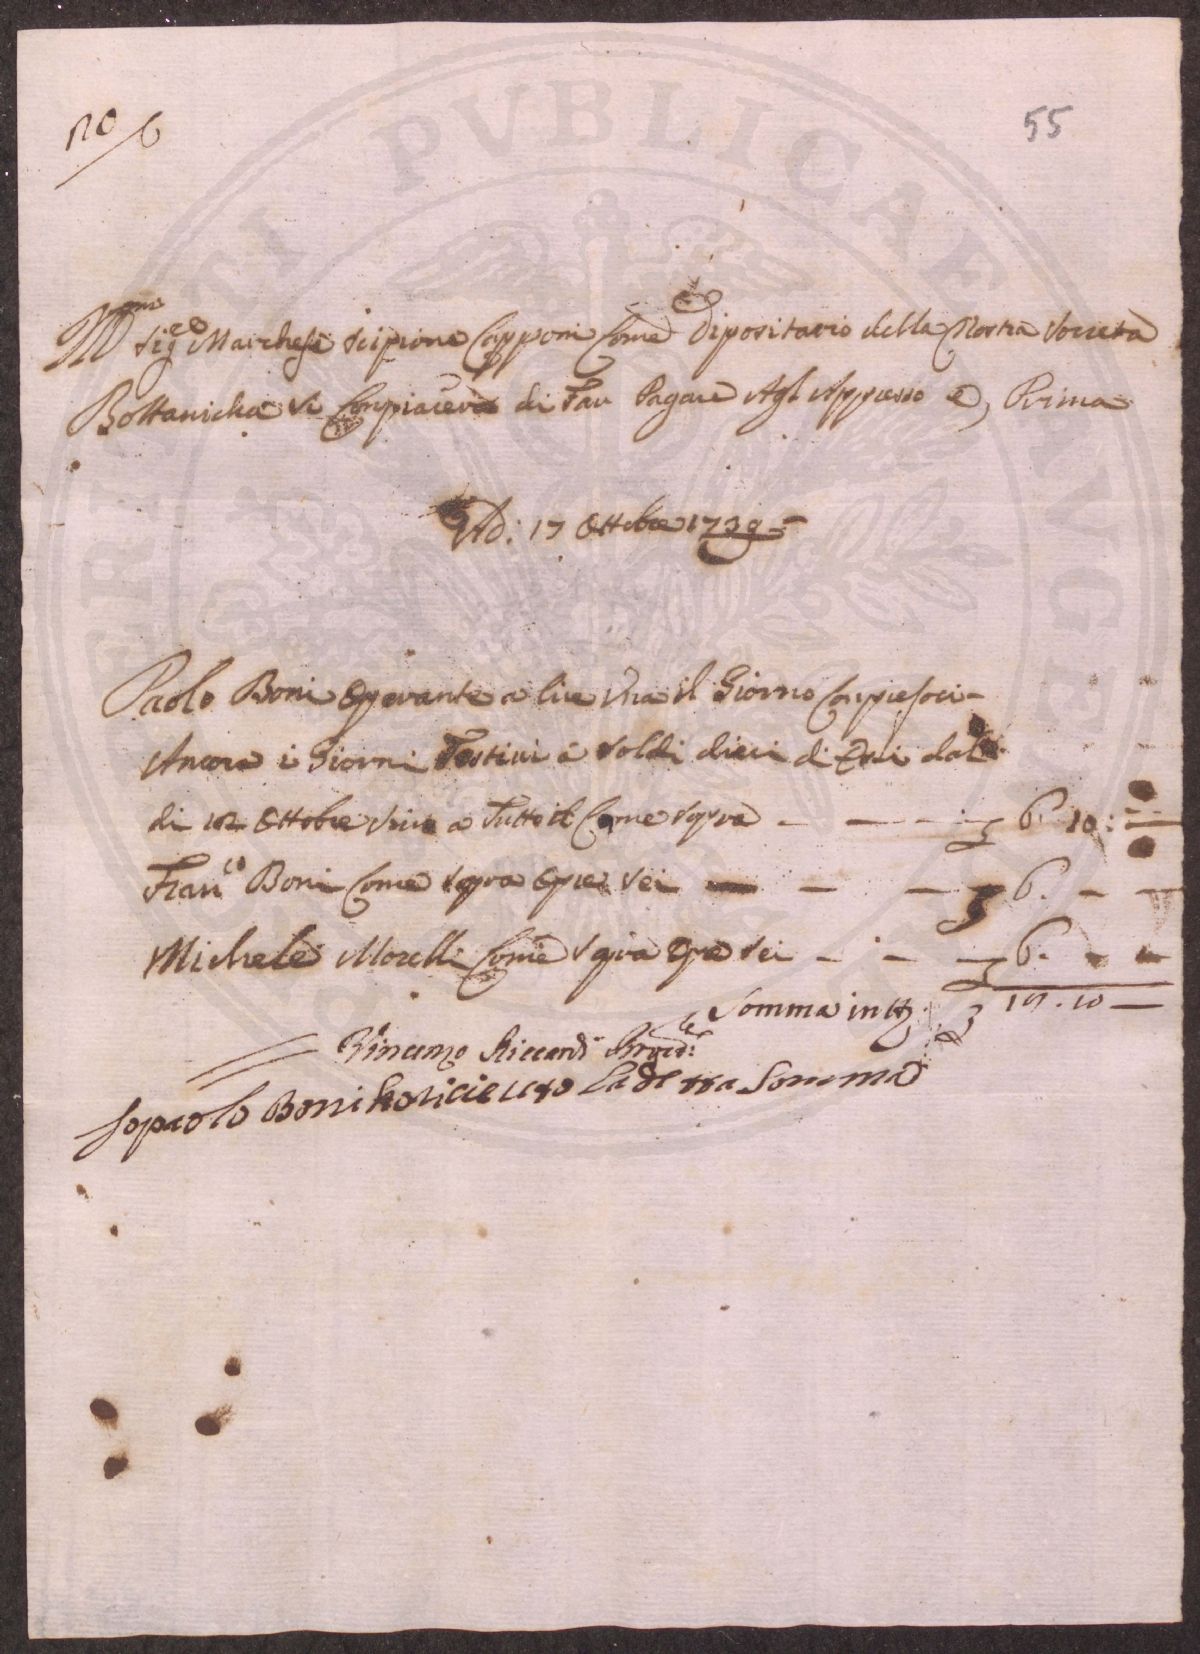 No 6
55
Ill.mo Sig.e Marchese Scipione Capponi Come Dipositario della Nostra Società
Bottanicha si Conpiacerà di Far Pagare Agl Appresso e, Prima
Ad: 17 Ottobre 1739
Paolo Boni Operante a lire Una il Giorno Conpresoci
Ancora i Giorni Festivi a Soldi dieci di Essi dal
di 12 Ottobre Sino a Tutto il Come Sopra — — — £ 6. 10: —
Fran.co Boni Come Sopra Opre Sei — — — £ 6. — —
Michele Morelli Come Sopra Opre Sei — — — £ 6. — —
Somma in tt.o £ 18. 10 —
Vincenzo Riccardi Proved.re
Io paolo Boni ho riceuto La detta Somma